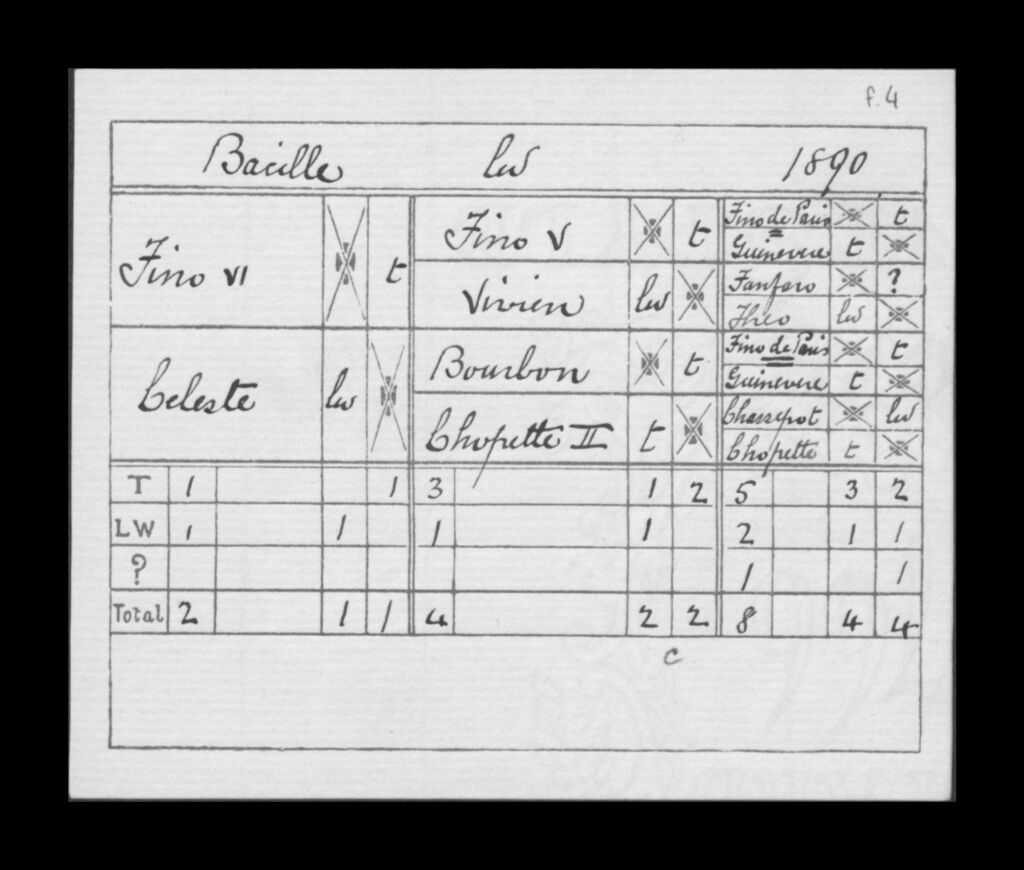 f. 4
Bacille lw 1890
Fino VI t
Celeste lw
Fino V t
Vivien lw
Bourbon t
Chopette II t
Fino de Paris t
Guinevere t
Fanfaro ?
Theo lw
Fino de Paris t
Guinevere t
Chassepot lw
Chopette t
T 1 1 3 1 2 5 3 2
LW 1 1 1 1 2 1 1
? 1 1
Total 2 1 1 4 2 2 8 4 4
c